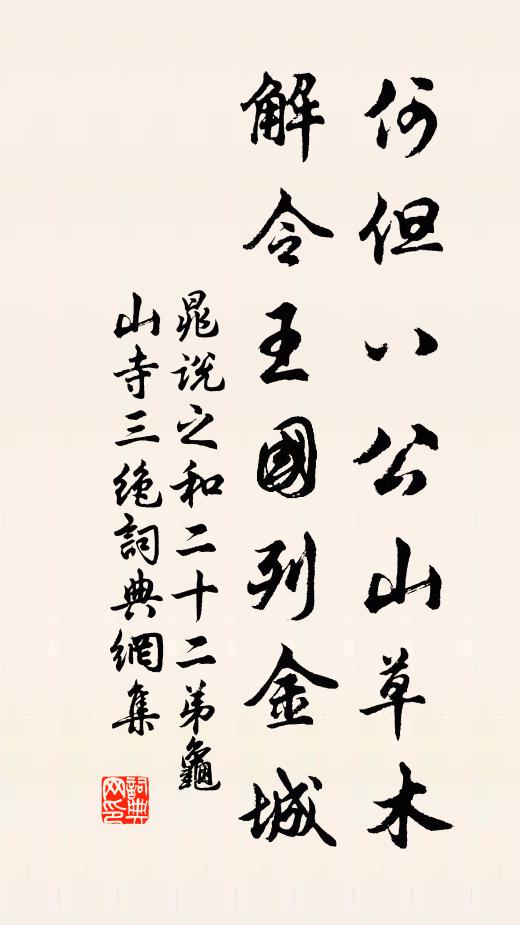 何但八公山草木
解令王國列金城
晁說之和二十二弟龜
山寺三絶詞典網集
詞典
网印